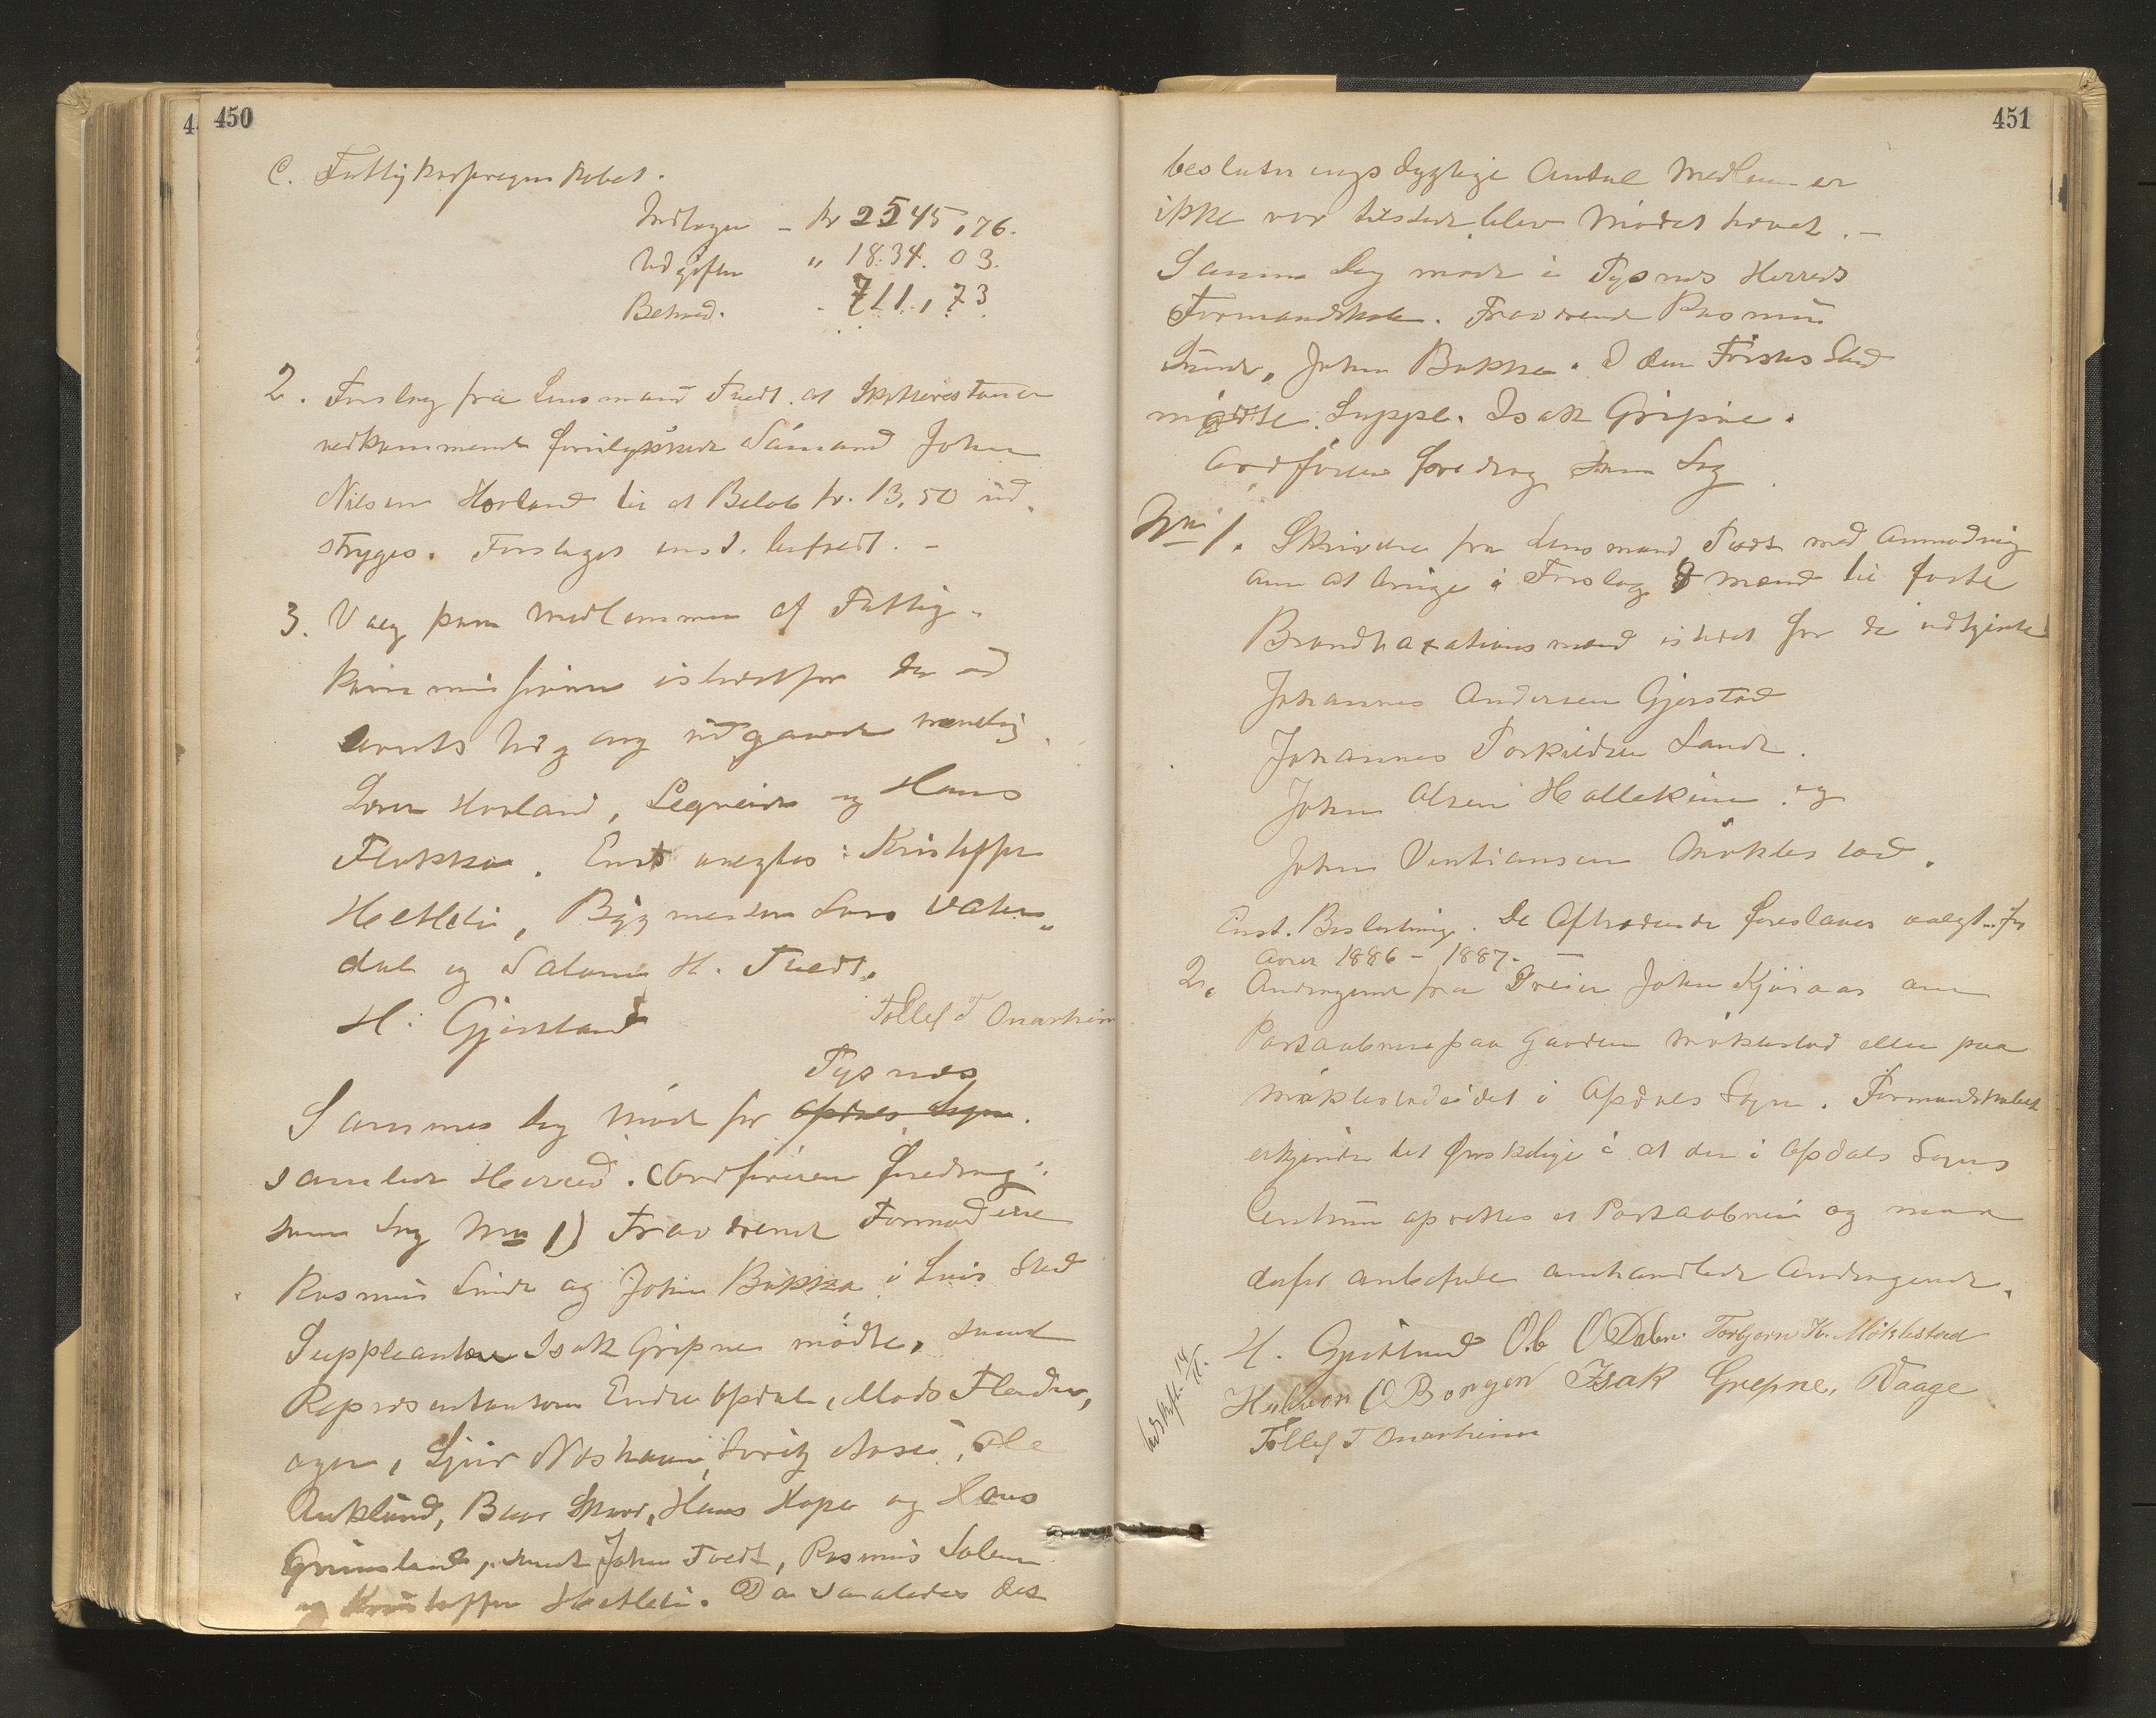 450
C. Fattigkasseregnskabet.
Indtægter - Kr 2545,76.
Udgifter " 1834. 03.
Behold. 711,73
2. Forslag fra Lensmand Tvedt at Skatterestancen
vedkommende forulykkede Sömand John
Nilsen Hovland til et Beløb kr. 13,50 ud-
stryges. Forslaget enst. bifaldt. -
3. Valg paa Medlemmer af Fattig-
kommissionen istedetfor de ved
Aarets Udgang udgaaende nemlig
Hovland, og Hans
Flakka. Enst valgtes: Kristoffer
Hetlelii, Bygmester Lars Vatn-
dal og Salamon H. Tvedt.
H. Gjerstand Tollef T Onarheim
Tysnes
Sammes Dag Möde for Opdals Sogn.
samlede Herred. Ordföreren foredrog:
som Sag No 1) Fraværende Formænd
Rasmus Sunde og John Bakka i hvis Sted
Suppleanten Isak Gripne mödte, samt
Repræsentanterne Endre Opdal, Mads Flader-
ager, Sjur Næsheim, Aase, Ole
Aukland, Baar Skaar, Hans Hope og Hans
Grimsland, samt John Tvedt, Rasmus Solem
og Kristoffer Hetlelii. Da saaledes det
451
beslutningsdygtige Antal Medlemmer
ikke var tilstede blev Mödet hævet. -
Samme Dag möde i Tysnes Herreds
Formandskab. Fraværende Rasmus
Sunde, John Bakka. I den Förstes Sted
mödte Suppl. Isak Gripne.
Ordföreren foredrog som Sag
No 1. Skrivelse fra Lensmand Tvedt med Anmodning
om at bringe i Forslag 8 Mænd til faste
Brandtaxationsmænd istedet for de udtjente
Johannes Andersen Gjerstad
Johannes Torkildsen Lande.
John Olsen Hallekim og
John Christiansen Möklestad.
Enst. Beslutning. De Aftrædende foreslaaes valgt for
Aaret 1886 - 1887. -
2. Andragende fra Dreier John Kjøraas om
Postaabneri paa Gaarden Möklestad eller paa
Möklestadeidet i Opdals Sogn. Formandskabet
erkjender det Ønskelige i at der i Opdals Sogns
Centrum oprettes et Postaabneri og maa
derfor anbefale omhandlede Andragende.
H. Gjerstand O.b O Dalen Torbjørn K. Möklestad
Halvor O Bongen Isak Grepne, Vaage
Tollef T Onarheim
Udskr. 14/11.